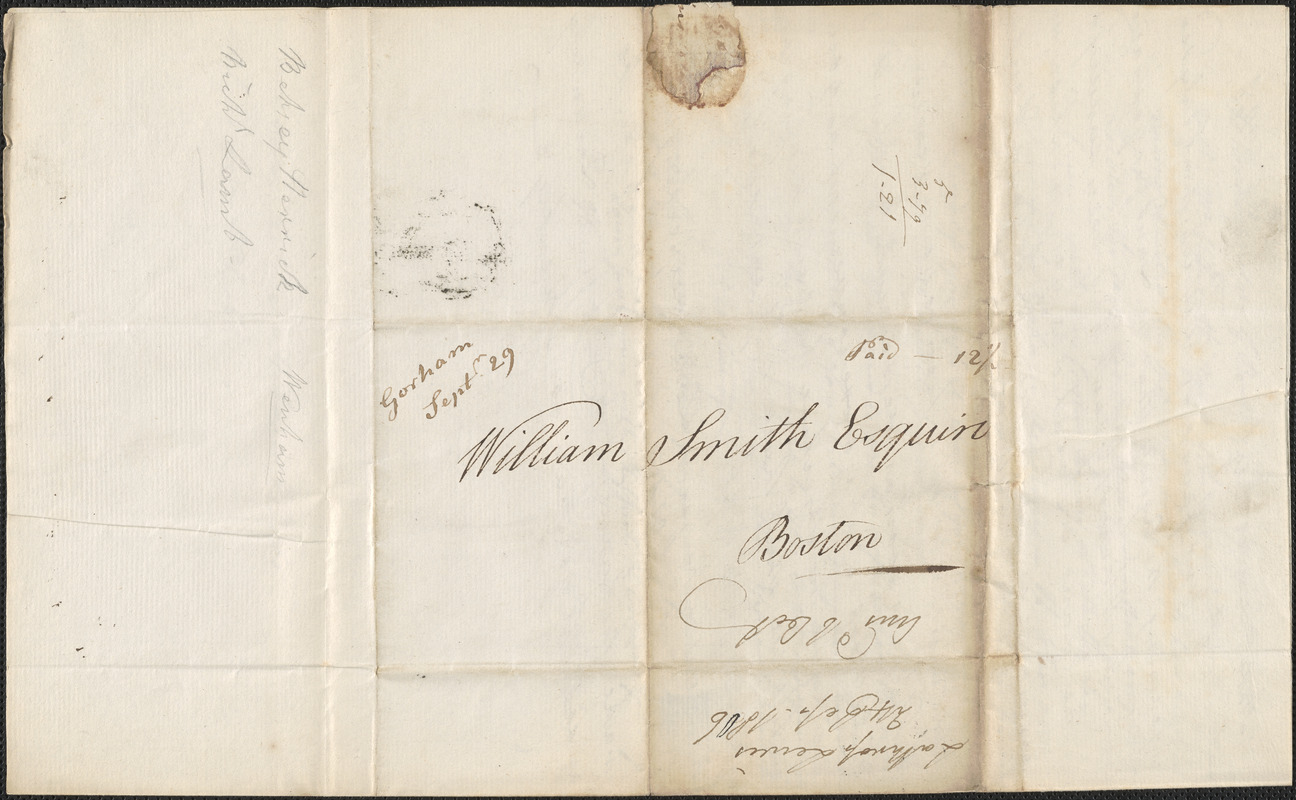 Betsey Herrick Wenham
with Lamb
5
3-79
1-21
Gorham
Septr. 29
Paid — 12½
William Smith Esquire
Boston
Lathrop Lewis
24 Sep. 1806